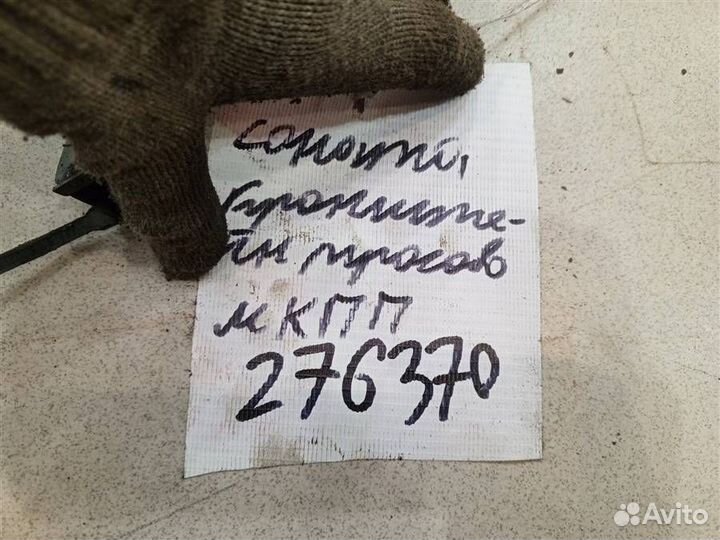 соната,
Кронште-
йн тросов
МКПП
276370
Avito